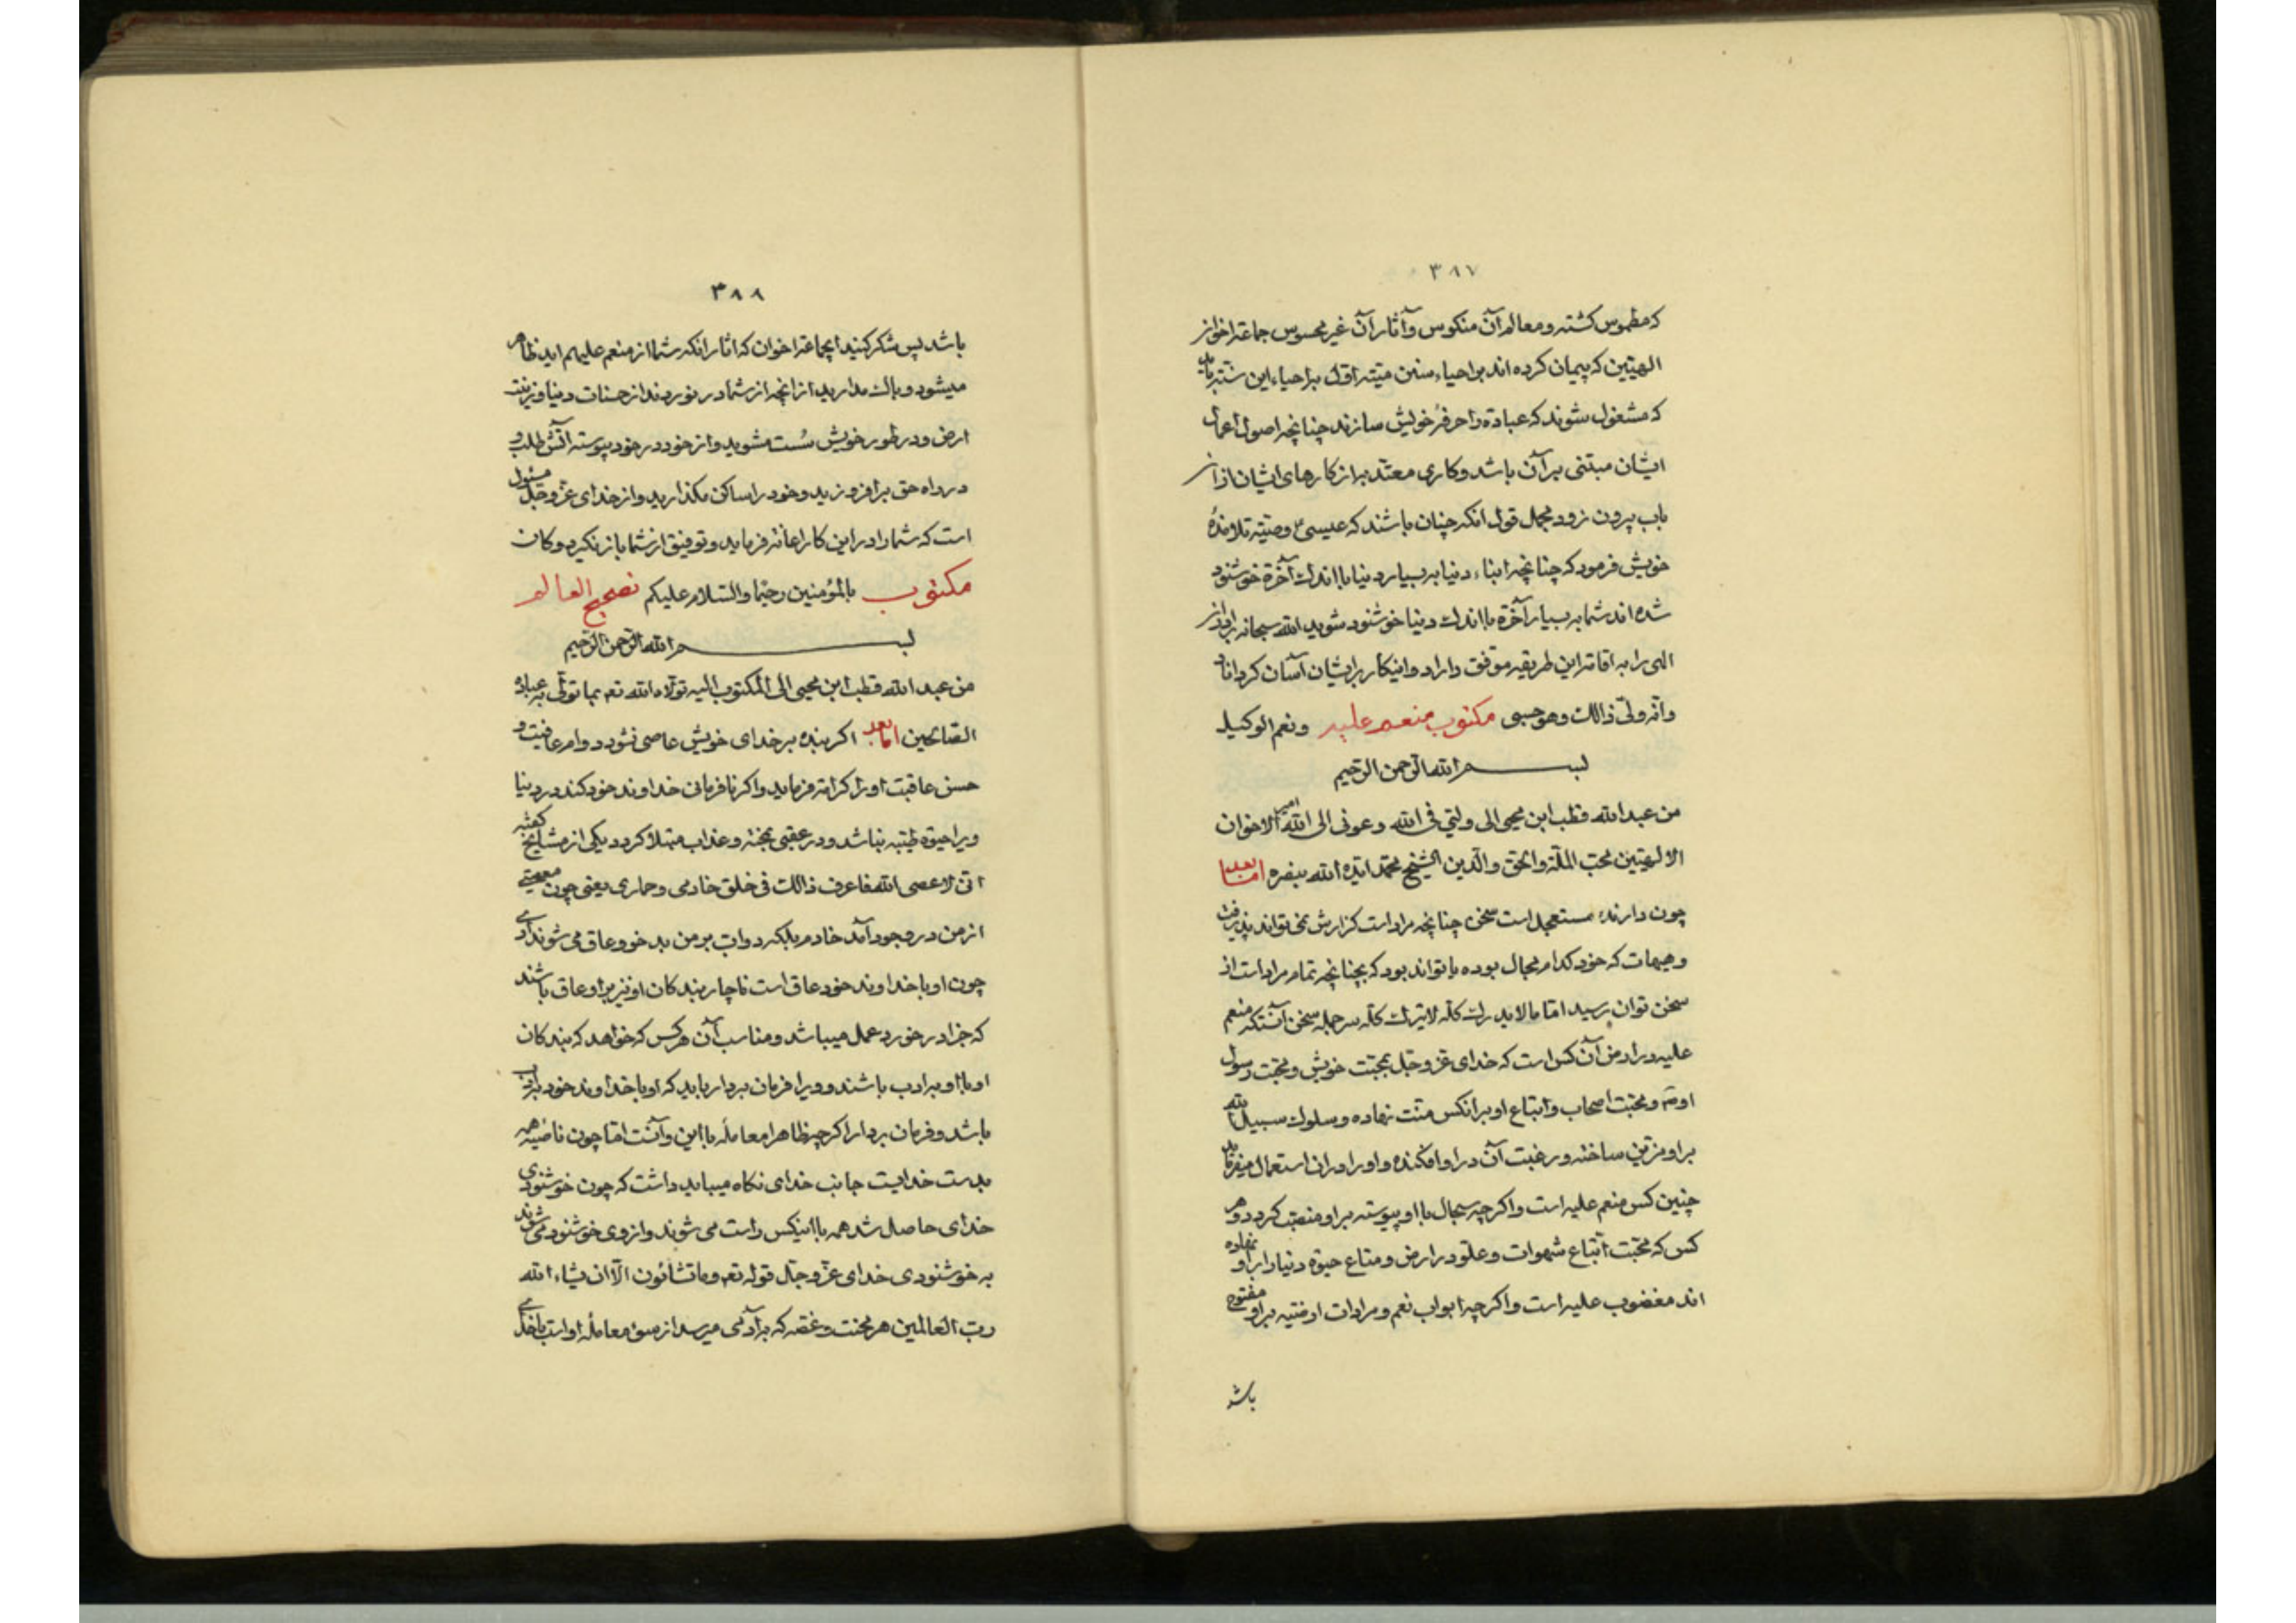 ۳۸۷
که مطموس کشته و معالم آن منکوس و آثار آن غیر محسوس جماعة اخوان
الهیین که پیمان کرده اند بر احیاء سنن میته اوّل بر احیاء این سنت
که مشغول شوند که عبادة را حرفهٔ خویش سازند چنانچه اصول اعمال
ایشان مبتنی بر آن باشد و کاری معتدّ به از کارهای ایشان از آن
باب بیرون نرود مجمل قول انکه چنان باشند که عیسی ع وصیته تلامذهٔ
خویش فرمود که چنانچه ابناء دنیا به بسیار دنیا با اندک آخرة خوشنود
شده اند شما به بسیار آخرة با اندک دنیا خوشنود شوید الله سبحانه
الهی را به اقامة این طریقه موفق داراد و اینکار بر ایشان آسان کرداناد
وانه ولیّ ذالک وهو حسبی مکتوب منعم علیه ونعم الوکیل
بسم الله الرحمن الرحیم
من عبد الله قطب ابن محیی الی ولیّی فی الله وعونی الی الله امیر الاخوان
الالهیین محب الملّة والحق والدین الشیخ محمد ایّده الله بنصره امّا بعد
چون دارنده مستعجل است سخن چنانچه مراد است کزارش نمی تواند پذیرفت
وهیهات که خود کدام مجال بوده یا تواند بود که بچنانچه تمام مراد است از
سخن توان رسید امّا مالا یدرک کلّه لا یترک کلّه سر جمله سخن آنستکه منعم
علیه در ارض آن کس است که خدای عزّ وجلّ بمحبّت خویش و محبّت رسول
او صم و محبّت اصحاب و اتباع او بر انکس منّت نهاده و سلوک سبیل الله
بر او مزیّن ساخته و رغبت آن در او افکنده و او را در ان استعمال میفرماید
چنین کس منعم علیه است و اکرچه سجال بلا و پیوسته بر او منصبّ کردد و هر
کس که محبّت اتّباع شهوات و علوّ در ارض و متاع حیوة دنیا را بر او نهاده
اند مغضوب علیه است و اکرچه ابواب نعم و مرادات ارضیه بر او مفتوح
باشد
۳۸۸
باشد پس شکر کنید ایجماعة اخوان که اثار انکه شما از منعم علیهم اید ظاهر
میشود و باک مدارید از انچه از شما در نوردند از حسنات دنیا و زینت
ارض و در طور خویش سُست مشوید و از خود در خود پیوسته آتش طلب
در راه حق برافروزید و خود را ساکن مکذارید و از خدای عزّ وجلّ مسئول
است که شما را در این کار اعانة فرماید و توفیق از شما باز نکیرد وکان
مکتوب بالمؤمنین رحیما والسّلام علیکم نصحیح العالم
بسم الله الرحمن الرحیم
من عبد الله قطب ابن محیی الی المکتوب الیه تولّاه الله تعم بما تولّی به عباده
الصّالحین امّا بعد اکر بنده بر خدای خویش عاصی نشود دوام عافیت و
حسن عاقبت او را کرامة فرماید و اکر نافرمانی خداوند خود کند در دنیا
ویرا حیوة طیّبه نباشد و در عقبی بمحنة و عذاب مبتلا کردد یکی از مشایخ کفته
انّی لاعصی الله فاعرف ذالک فی خلق خادمی وحماری یعنی چون معصیتی
از من در وجود آمد خادم بلکه دوابّ بر من بد خو و عاق می شوند آدمی
چون او با خداوند خود عاق است ناچار بندکان او نیز بر او عاق باشند
که جزا در خورد عمل میباشد و مناسب آن هر کس که خواهد که بندکان
او با او به ادب باشند و ویرا فرمان بردار باید که او با خداوند خود به ادب
باشد و فرمان بردار اکرچه ظاهرا معامله با این و آنست امّا چون ناصیه همه
بدست خدایست جانب خدای نکاه میباید داشت که چون خوشنودی
خدای حاصل شد همه با اینکس راست می شوند و از وی خوشنود می شوند
به خوشنودی خدای عزّ وجلّ قوله تعم وما تشائون الّا ان یشاء الله
ربّ العالمین هر محنت و غصه که به آدمی میرسد از سوء معامله او است با خدای